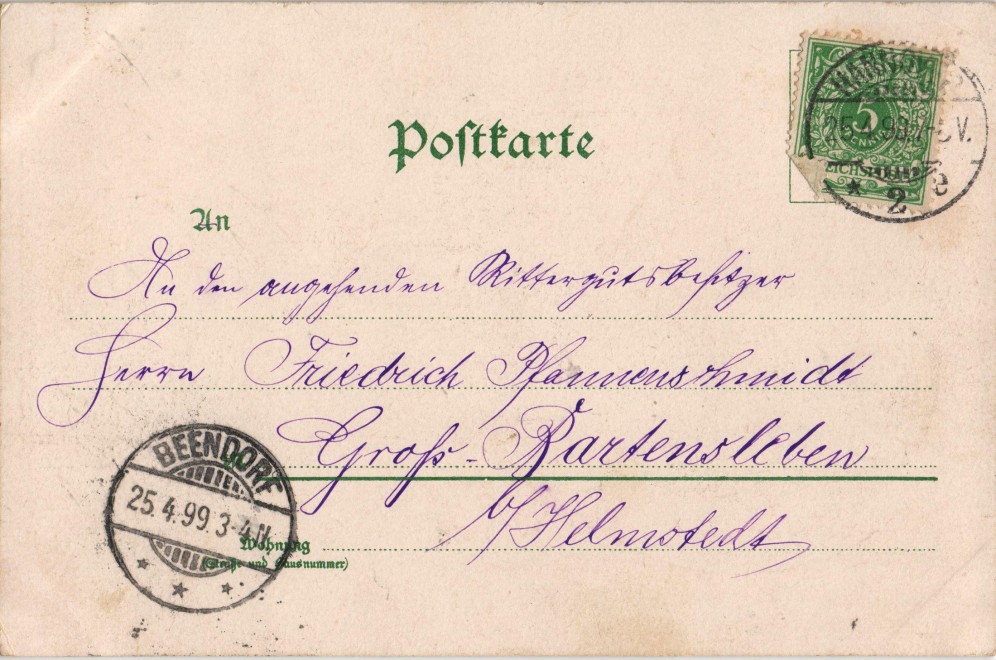 Postkarte
5
25.4.99.7-8V.
* 2 e
An
An den angehenden Rittergutsbesitzer
Herrn Friedrich Pfannenschmidt
Groß-Bartensleben
b/Helmstedt
BEENDORF
25.4.99.3-4N.
Wohnung
(Straße und Hausnummer)